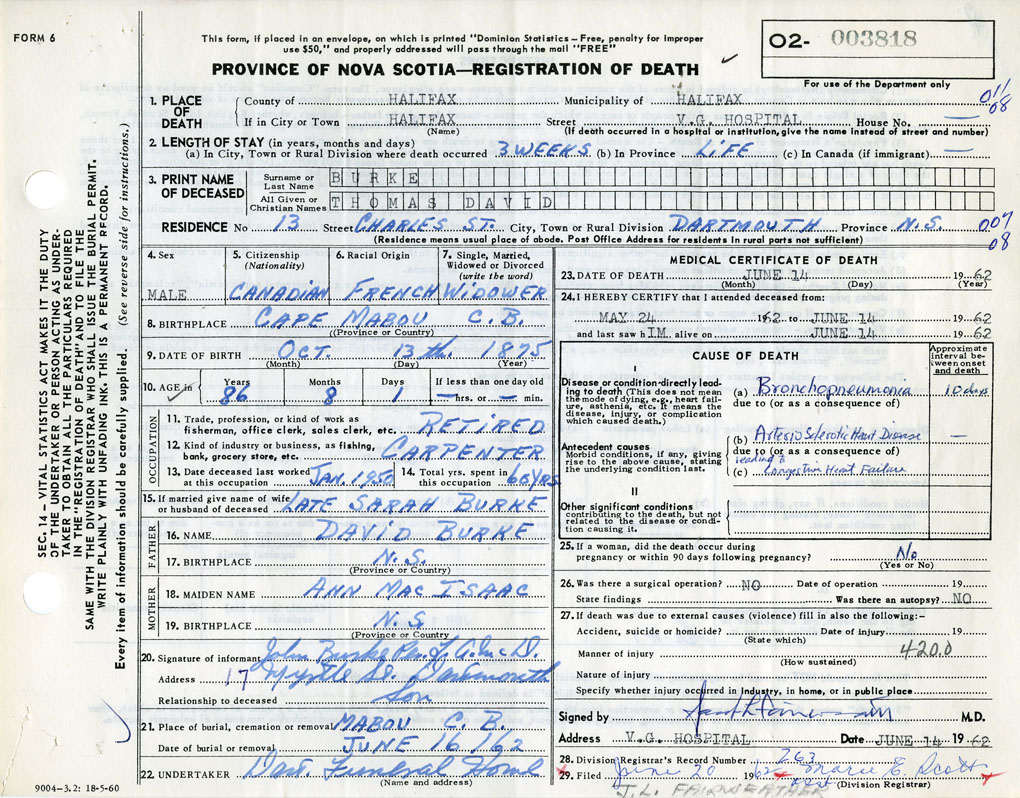 FORM 6
This form, if placed in an envelope, on which is printed "Dominion Statistics – Free, penalty for improper
use $50," and properly addressed will pass through the mail "FREE"
PROVINCE OF NOVA SCOTIA—REGISTRATION OF DEATH
02- 003818
For use of the Department only
1. PLACE OF DEATH
County of HALIFAX Municipality of HALIFAX 01/08
If in City or Town HALIFAX Street V.G. HOSPITAL House No. —
(Name) (If death occurred in a hospital or institution, give the name instead of street and number)
2. LENGTH OF STAY (in years, months and days)
(a) In City, Town or Rural Division where death occurred 3 WEEKS (b) In Province LIFE (c) In Canada (if immigrant) —
3. PRINT NAME OF DECEASED
Surname or Last Name BURKE
All Given or Christian Names THOMAS DAVID
RESIDENCE No 13 Street CHARLES ST. City, Town or Rural Division DARTMOUTH Province N.S. 007 08
(Residence means usual place of abode. Post Office Address for residents in rural parts not sufficient)
4. Sex MALE
5. Citizenship (Nationality) CANADIAN
6. Racial Origin FRENCH
7. Single, Married, Widowed or Divorced (write the word) WIDOWER
8. BIRTHPLACE CAPE MABOU C.B.
(Province or Country)
9. DATE OF BIRTH OCT. 13th. 1875
(Month) (Day) (Year)
10. AGE in Years 86 Months 8 Days 1 If less than one day old — hrs. or — min.
OCCUPATION
11. Trade, profession, or kind of work as
fisherman, office clerk, sales clerk, etc. RETIRED
12. Kind of industry or business, as fishing,
bank, grocery store, etc. CARPENTER
13. Date deceased last worked at this occupation JAN. 1950
14. Total yrs. spent in this occupation 60 YRS
15. If married give name of wife
or husband of deceased LATE SARAH BURKE
FATHER
16. NAME DAVID BURKE
17. BIRTHPLACE N.S.
(Province or Country)
MOTHER
18. MAIDEN NAME ANN MAC ISAAC
19. BIRTHPLACE N.S
(Province or Country)
20. Signature of informant John Burke Per
Address 17 Myrtle St. Dartmouth
Relationship to deceased Son
21. Place of burial, cremation or removal MABOU C.B.
Date of burial or removal JUNE 16/62
22. UNDERTAKER Dart. Funeral Home
(Name and address)
9004-3.2: 18-5-60
MEDICAL CERTIFICATE OF DEATH
23. DATE OF DEATH JUNE 14 1962
(Month) (Day) (Year)
24. I HEREBY CERTIFY that I attended deceased from:
MAY 24 1962 to JUNE 14 1962
and last saw hIM alive on JUNE 14 1962
CAUSE OF DEATH
Approximate interval between onset and death
I
Disease or condition directly leading to death (This does not mean the mode of dying, e.g., heart failure, asthenia, etc. It means the disease, injury, or complication which caused death.)
(a) Bronchopneumonia 10 days
due to (or as a consequence of)
Antecedent causes
Morbid conditions, if any, giving rise to the above cause, stating the underlying condition last.
(b) Arterio Sclerotic Heart Disease —
due to (or as a consequence of)
leading to
(c) Congestive Heart Failure
II
Other significant conditions
contributing to the death, but not related to the disease or condition causing it.
25. If a woman, did the death occur during
pregnancy or within 90 days following pregnancy? No
(Yes or No)
26. Was there a surgical operation? NO Date of operation 19
State findings Was there an autopsy? NO
27. If death was due to external causes (violence) fill in also the following:–
Accident, suicide or homicide? Date of injury 19
(State which)
Manner of injury 420.0
(How sustained)
Nature of injury
Specify whether injury occurred in industry, in home, or in public place
Signed by M.D.
Address V.G. HOSPITAL Date JUNE 14 1962
28. Division Registrar's Record Number 263
29. Filed June 20 1962 Marie E. Scott
(Division Registrar)
J.L. FAIRWEATHER
SEC. 14 – VITAL STATISTICS ACT MAKES IT THE DUTY
OF THE UNDERTAKER OR PERSON ACTING AS UNDER-
TAKER TO OBTAIN ALL THE PARTICULARS REQUIRED
IN THE "REGISTRATION OF DEATH" AND TO FILE THE
SAME WITH THE DIVISION REGISTRAR WHO SHALL ISSUE THE BURIAL PERMIT.
WRITE PLAINLY WITH UNFADING INK. THIS IS A PERMANENT RECORD.
Every item of information should be carefully supplied. (See reverse side for instructions.)